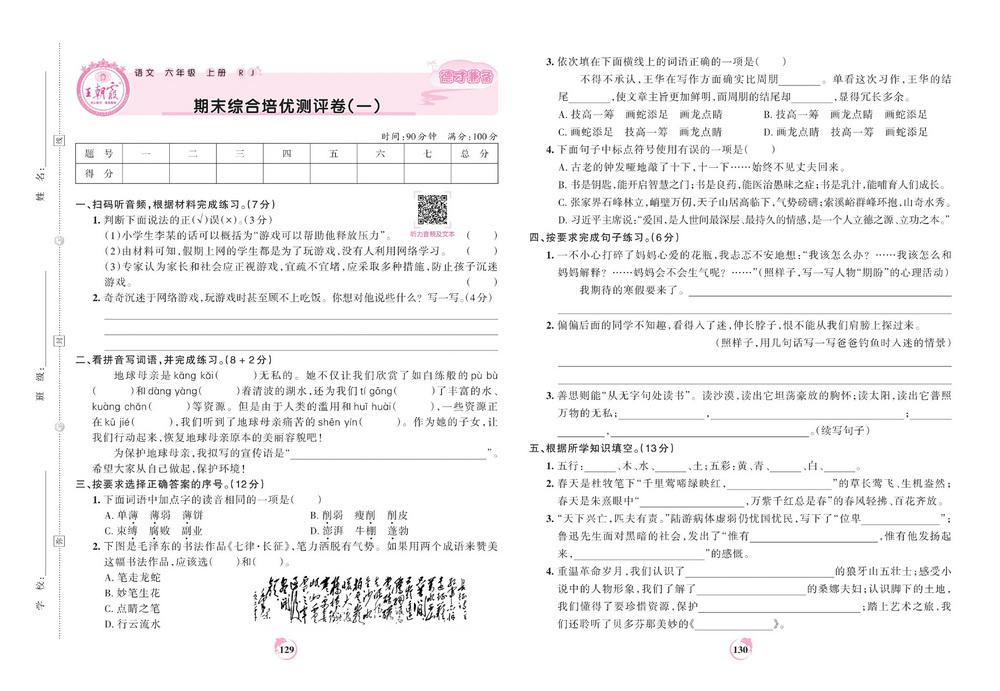 王朝霞
语文 六年级 上册 RJ
德才兼备
期末综合培优测评卷(一)
时间:90分钟 满分:100分
题 号 一 二 三 四 五 六 七 总 分
得 分
一、扫码听音频,根据材料完成练习。(7分)
1. 判断下面说法的正(√)误(×)。(3分)
(1)小学生李某的话可以概括为“游戏可以帮助他释放压力”。 ( )
听力音频及文本
(2)由材料可知,假期上网的学生都是为了玩游戏,没有人利用网络学习。 ( )
(3)专家认为家长和社会应正视游戏,宜疏不宜堵,应采取多种措施,防止孩子沉迷
游戏。 ( )
2. 奇奇沉迷于网络游戏,玩游戏时甚至顾不上吃饭。你想对他说些什么?写一写。(4分)
二、看拼音写词语,并完成练习。(8+2分)
地球母亲是kāng kǎi( )无私的。她不仅让我们欣赏了如白练般的pù bù
( )和dàng yàng( )着清波的湖水,还为我们tí gōng( )了丰富的水、
kuàng chǎn( )等资源。但是由于人类的滥用和huǐ huài( ),一些资源正
在kū jié( ),我们听到了地球母亲痛苦的shēn yín( )。作为她的子女,让
我们行动起来,恢复地球母亲原本的美丽容貌吧!
为保护地球母亲,我拟写的宣传语是“ ”。
希望大家从自己做起,保护环境!
三、按要求选择正确答案的序号。(12分)
1. 下面词语中加点字的读音相同的一项是( )
A. 单薄 薄弱 薄饼 B. 削弱 瘦削 削皮
C. 束缚 腐败 副业 D. 澎湃 牛棚 蓬勃
2. 下图是毛泽东的书法作品《七律·长征》,笔力洒脱有气势。如果用两个成语来赞美
这幅书法作品,应该选( )和( )。
A. 笔走龙蛇
B. 妙笔生花
C. 点睛之笔
D. 行云流水
129
姓 名:
班 级:
学 校:
线
封
密
3. 依次填在下面横线上的词语正确的一项是( )
不得不承认,王华在写作方面确实比周朋 。单看这次习作,王华的结
尾 ,使文章主旨更加鲜明,而周朋的结尾却 ,显得冗长多余。
A. 技高一筹 画蛇添足 画龙点睛 B. 技高一筹 画龙点睛 画蛇添足
C. 画蛇添足 技高一筹 画龙点睛 D. 画蛇添足 画龙点睛 技高一筹
4. 下面句子中标点符号使用有误的一项是( )
A. 古老的钟发哑地敲了十下,十一下……始终不见丈夫回来。
B. 书是钥匙,能开启智慧之门;书是良药,能医治愚昧之症;书是乳汁,能哺育人们成长。
C. 张家界石峰林立,峭壁万仞,天子山居高临下,气势磅礴;索溪峪群峰环抱,山奇水秀。
D. 习近平主席说:“爱国,是人世间最深层、最持久的情感,是一个人立德之源、立功之本。”
四、按要求完成句子练习。(6分)
1. 一不小心打碎了妈妈心爱的花瓶,我忐忑不安地想:“我该怎么办?……我该怎么和
妈妈解释?……妈妈会不会生气呢?……”(照样子,写一写人物“期盼”的心理活动)
我期待的寒假要来了。
2. 偏偏后面的同学不知趣,看得入了迷,伸长脖子,恨不能从我们肩膀上探过来。
(照样子,用几句话写一写爸爸钓鱼时入迷的情景)
3. 善思则能“从无字句处读书”。读沙漠,读出它坦荡豪放的胸怀;读太阳,读出它普照
万物的无私; , ;
, 。(续写句子)
五、根据所学知识填空。(13分)
1. 五行: 、木、水、 、土;五彩:黄、青、 、白、 。
2. 春天是杜牧笔下“千里莺啼绿映红, ”的草长莺飞、生机盎然;
春天是朱熹眼中“ ,万紫千红总是春”的春风轻拂、百花齐放。
3. “天下兴亡,匹夫有责。”陆游病体虚弱仍忧国忧民,写下了“位卑 ”;
鲁迅先生面对黑暗的社会,发出了“惟有 ,惟有他发扬起
来, ”的感慨。
4. 重温革命岁月,我们认识了 的狼牙山五壮士;感受小
说中的人物形象,我们了解了 的桑娜夫妇;认识脚下的土地,
我们懂得了要珍惜资源,保护 ;踏上艺术之旅,我
们还聆听了贝多芬那美妙的《 》。
130